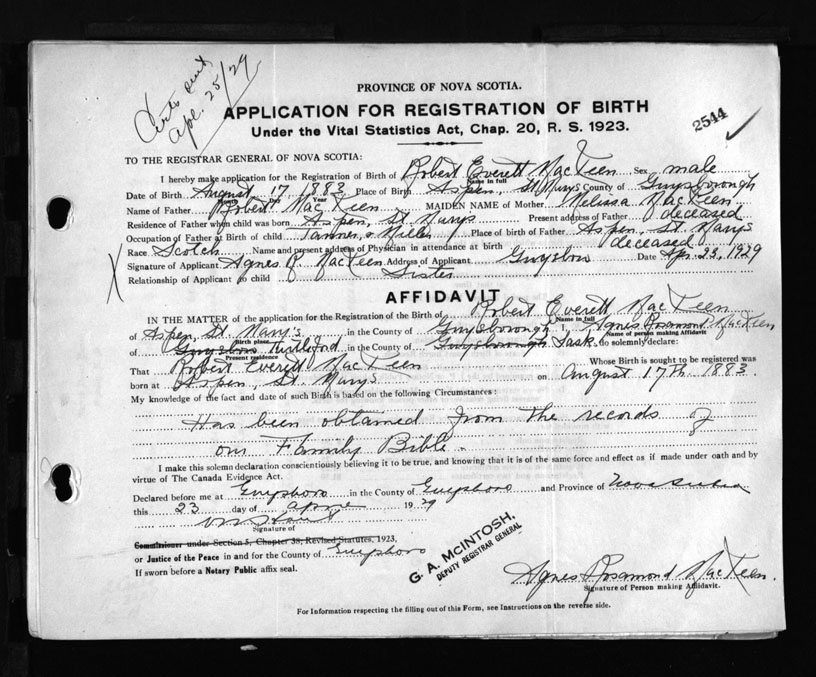 Certs sent
Apl. 25/29
PROVINCE OF NOVA SCOTIA.
APPLICATION FOR REGISTRATION OF BIRTH
Under the Vital Statistics Act, Chap. 20, R. S. 1923.
2544
TO THE REGISTRAR GENERAL OF NOVA SCOTIA:
I hereby make application for the Registration of Birth of Robert Everett MacKeen Sex male
Name in full
Date of Birth August 17 1883 Place of Birth Aspen, St Marys County of Guysborough
Month Day Year
Name of Father Robert MacKeen MAIDEN NAME of Mother Melissa MacKeen
Residence of Father when child was born Aspen, St. Marys Present address of Father deceased
Occupation of Father at Birth of child Tanner & Miller Place of birth of Father Aspen, St. Marys
Race Scotch Name and present address of Physician in attendance at birth deceased
Signature of Applicant Agnes R. MacKeen Address of Applicant Guysboro Date Apr. 23, 1929
Relationship of Applicant to child Sister
AFFIDAVIT
IN THE MATTER of the application for the Registration of the Birth of Robert Everett MacKeen
Name in full
of Aspen, St. Mary's in the County of Guysborough I, Agnes Rosamond MacKeen
Birth place Name of person making Affidavit
of Guysboro Turtleford in the County of Guysborough Sask. do solemnly declare:
Present residence
That Robert Everett MacKeen Whose Birth is sought to be registered was
born at Aspen, St. Marys on August 17th. 1883.
My knowledge of the fact and date of such Birth is based on the following Circumstances:
Has been obtained from the records of
our Family Bible.
I make this solemn declaration conscientiously believing it to be true, and knowing that it is of the same force and effect as if made under oath and by
virtue of The Canada Evidence Act.
Declared before me at Guysboro in the County of Guysboro and Province of Nova Scotia
this 23 day of April 1929
Signature of
Commissioner under Section 5, Chapter 38, Revised Statutes, 1923,
or Justice of the Peace in and for the County of Guysboro
If sworn before a Notary Public affix seal.
G. A. McINTOSH,
DEPUTY REGISTRAR GENERAL
Agnes Rosamond MacKeen.
Signature of Person making Affidavit.
For Information respecting the filling out of this Form, see Instructions on the reverse side.